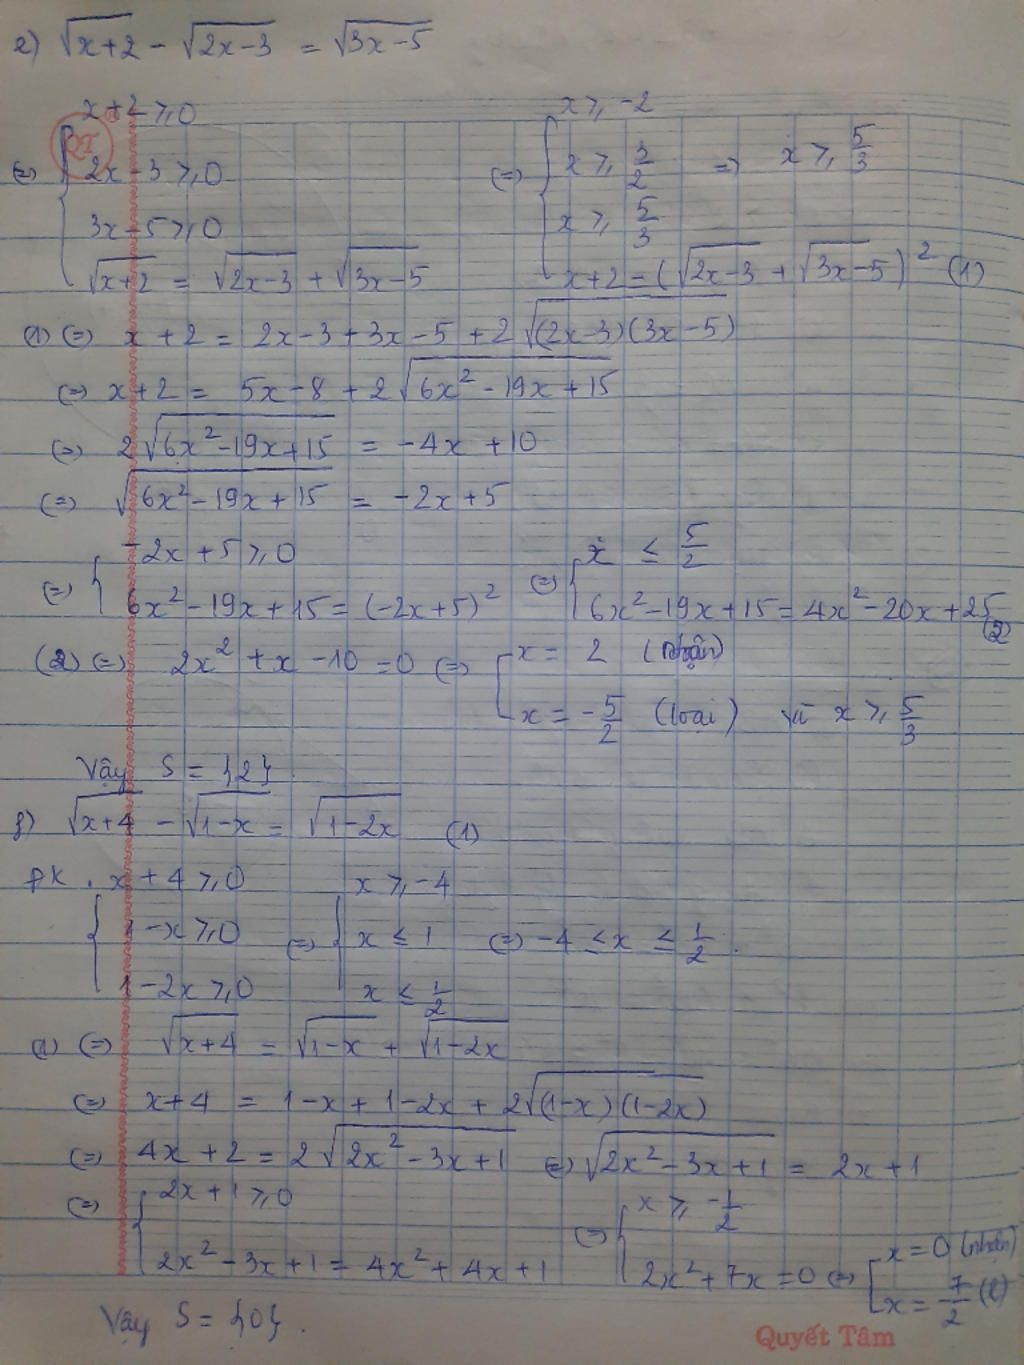 e) √(x+2) − √(2x−3) = √(3x−5)
(=) { x+2 ≥ 0 (=) { x ≥ −2
2x−3 ≥ 0 x ≥ 3/2 => x ≥ 5/3
3x−5 ≥ 0 x ≥ 5/3
√(x+2) = √(2x−3) + √(3x−5) x+2 = (√(2x−3) + √(3x−5))² (1)
(1) (=) x+2 = 2x−3+3x−5+2√((2x−3)(3x−5))
(=) x+2 = 5x−8+2√(6x²−19x+15)
(=) 2√(6x²−19x+15) = −4x+10
(=) √(6x²−19x+15) = −2x+5
(=) { −2x+5 ≥ 0 (=) { x ≤ 5/2
6x²−19x+15 = (−2x+5)² 6x²−19x+15 = 4x²−20x+25 (2)
(2) (=) 2x²+x−10 = 0 (=) [ x = 2 (nhận)
x = −5/2 (loại) vì x ≥ 5/3
Vậy S = {2}
f) √(x+4) − √(1−x) = √(1−2x) (1)
ĐK. { x+4 ≥ 0 (=) { x ≥ −4
1−x ≥ 0 x ≤ 1 (=) −4 ≤ x ≤ 1/2.
1−2x ≥ 0 x ≤ 1/2
(1) (=) √(x+4) = √(1−x) + √(1−2x)
(=) x+4 = 1−x+1−2x+2√((1−x)(1−2x))
(=) 4x+2 = 2√(2x²−3x+1) (=) √(2x²−3x+1) = 2x+1
(=) { 2x+1 ≥ 0 (=) { x ≥ −1/2
2x²−3x+1 = 4x²+4x+1 2x²+7x = 0 (=) [ x = 0 (nhận)
x = −7/2 (l)
Vậy S = {0}.
Quyết Tâm